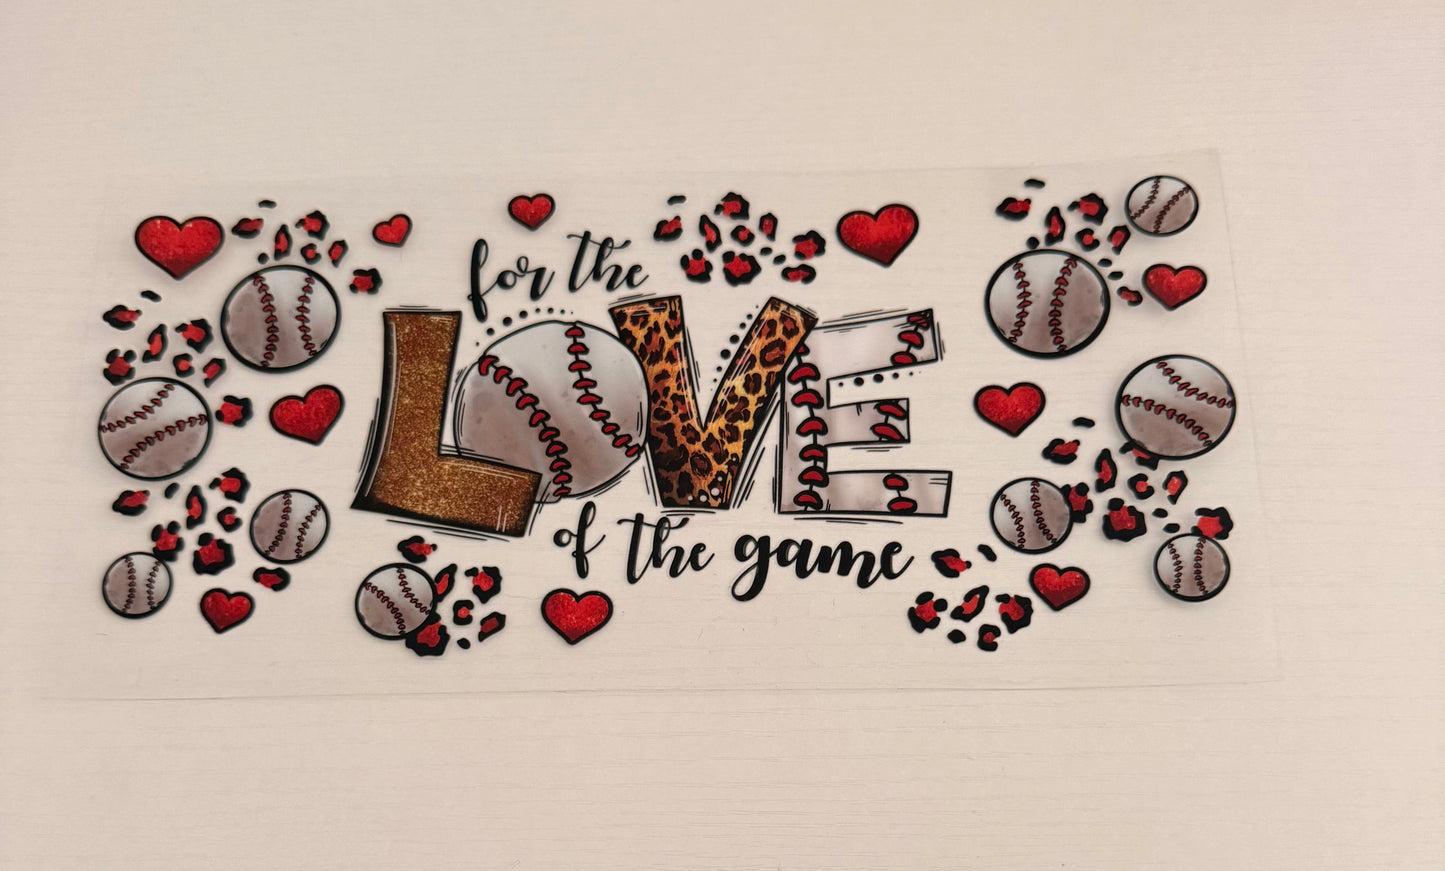 for the
LOVE
of the game